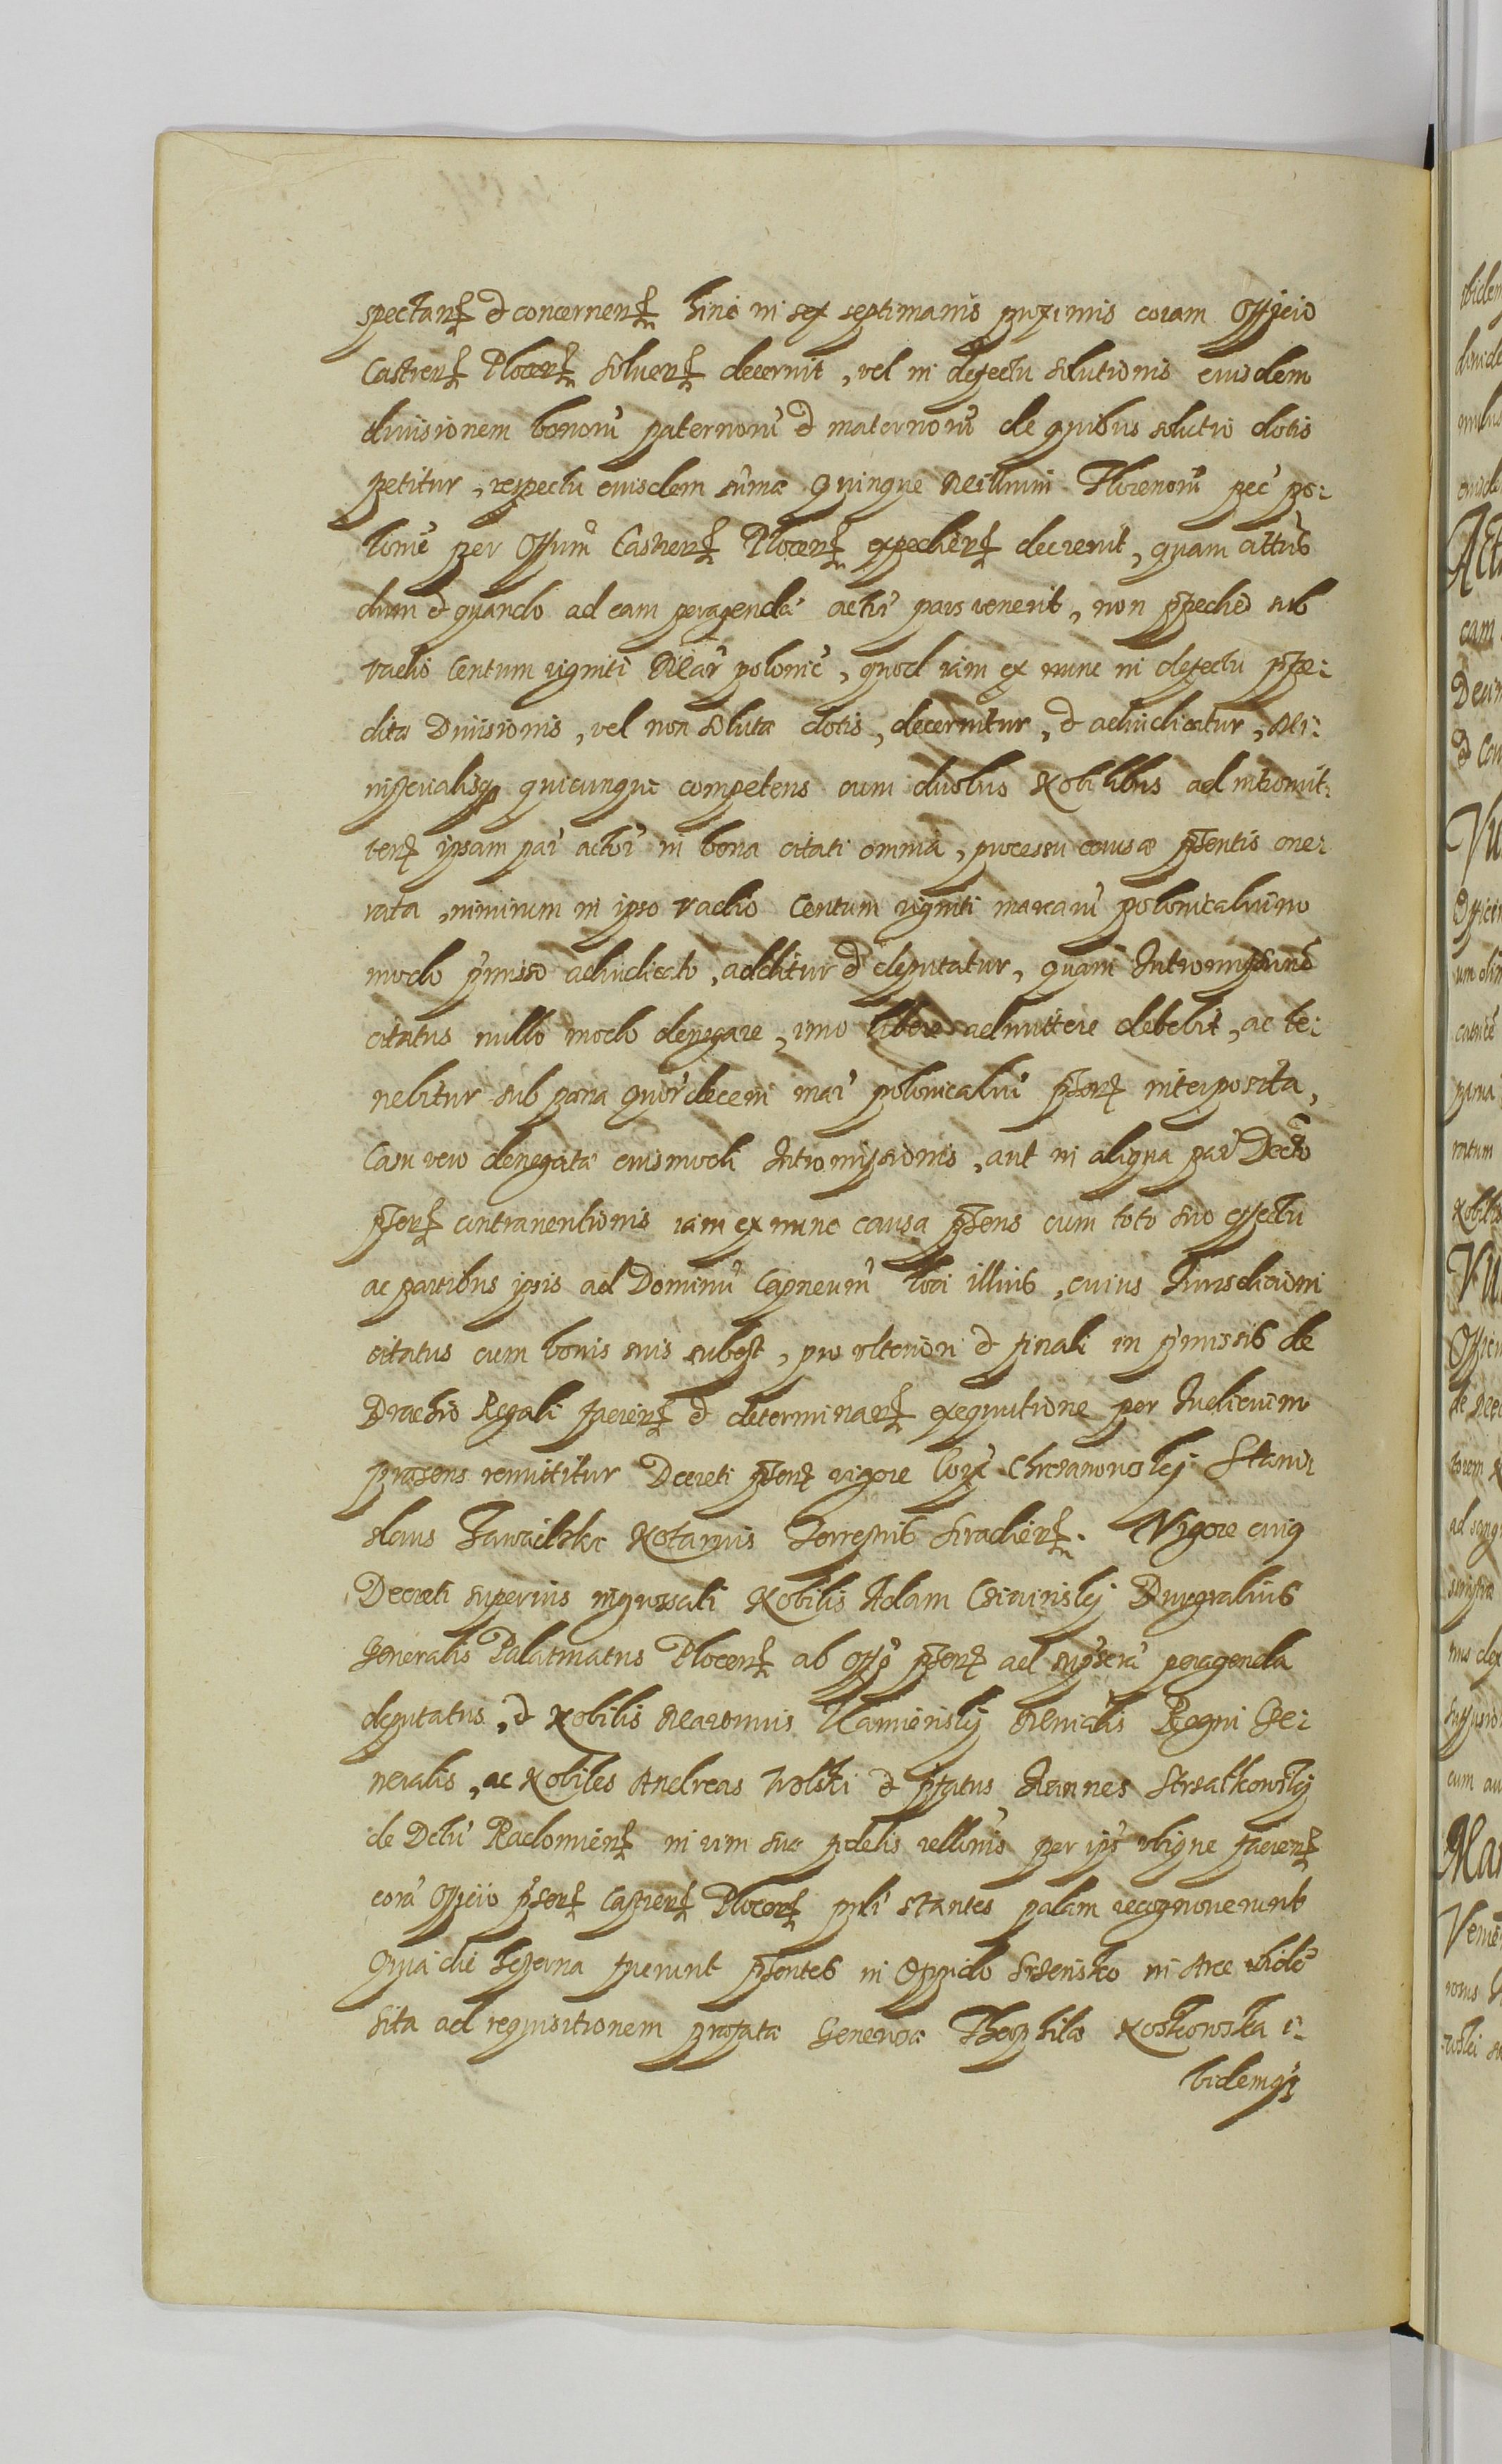 spectan et concernen hinc in sex septimanis proximis coram Officio
Castren Plocen solven decernit, vel in defectu solutionis eiusdem
diuisionem bonorū paternorū et maternorū de quibus solutio dotis
petitur, respectu eiusdem sūmæ quinque Millium Florenorū pec po:
lonic per Offūm Castren Plocen expedien decreuit, quam cittūs
dum et quando ad eam peragendā actrī pars venerit, non p̄pediet sub
vadio Centum viginti Mar polonic, quod iam ex nunc in defectu p̄fæ:
ditæ Diuisionis, vel non solutæ dotis, decernitur, et adiudicatur, Mi:
nisterialisq quicunque competens cum duobus Nobilibus ad intromit:
ten ipsam par actri in bona citati omnia, processu causæ p̄sentis one:
rata, nimirum in ipso vadio Centum viginti marcarū polonicalium
modo p̄misso adiudicato, additur et deputatur, quam Intromissionē
citatus nullo modo denegare, imo libere admittere debebit, ac te:
nebitur sub pæna quordecem mar polonicaliū p̄sen interposita,
Casu vero denegatæ eiusmodi Intromissionis, aut in aliqua par Decto
p̄sen contrauentionis iam ex nunc causa p̄sens cum toto suo effectu
ac partibus ipsis ad Dominū Capneum loci illius, cuius Iurisdictioni
citatus cum bonis suis subest, pro vlteriori et finali in p̄missis de
Brachio Regali facien et determinan exequutione per Iudicium
præsens remittitur Decreti p̄sen vigore Corx Chrzanowskj Stanis
slaus Zawadzki Notarius Terrestris Siradien. Vigore cuiq
Decreti superius ingrossati Nobilis Adam Czirinskj Burgrabius
generalis Palatinatus Plocen ab offō p̄sen ad infrscrā peragenda
deputatus, et Nobilis Martinus Kamienskj Mnialis Regni Ge:
neralis, ac Nobiles Andreas Wolski et p̄fatus Ioannes Strzałkowskj
de Dctū Radomien in vim suæ fidelis rellonis per ips vbique facien
corā Officio p̄sen Castren Plocen pnli stantes palam recognouerunt
Quia die hesterna fuerunt p̄sentes in Oppido Srzensko in Arce ibidē
sita ad requisitionem præfatæ Generosæ Theophilæ Koskowska i:
bidemq